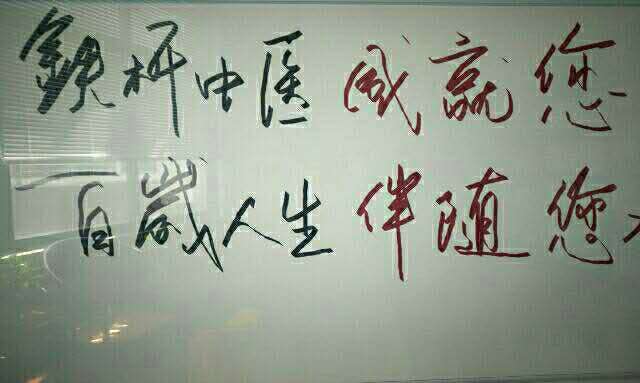 銀杯中医 成就您
百歲人生 伴随您